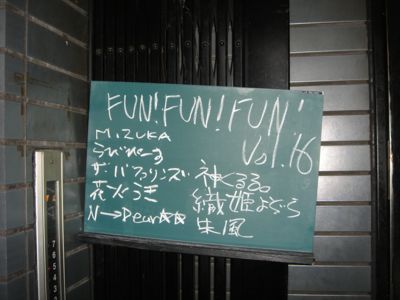 FUN! FUN! FUN!
Vol.16
MIZUKA
らびぃーす
ザ・バファリンズ
花火うき
N→Dear☆☆
神くるる。
織姫よぞら
生風
7
6
5
4
3